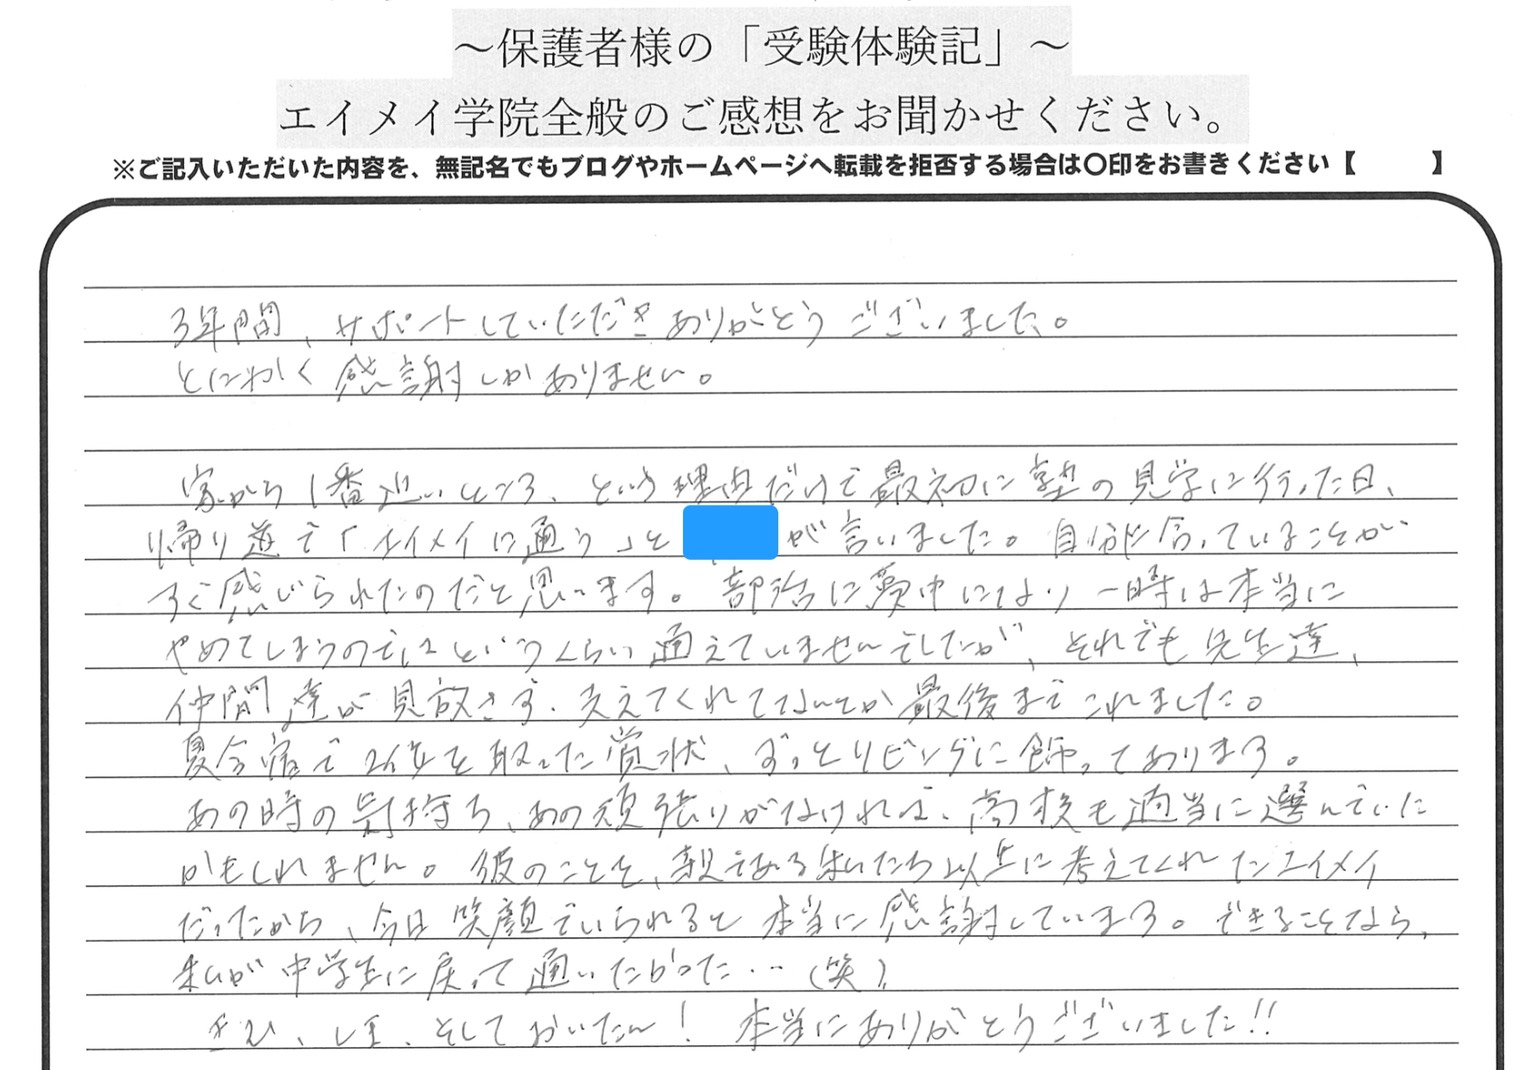 ～保護者様の「受験体験記」～
エイメイ学院全般のご感想をお聞かせください。
※ご記入いただいた内容を、無記名でもブログやホームページへ転載を拒否する場合は〇印をお書きください【　　】
3年間、サポートしていただきありがとうございました。
とにかく感謝しかありません。
家から1番近いところ、という理由だけで最初に塾の見学に行った日、
帰り道で「エイメイに通う」と が言いました。自分に合っていることが
すぐ感じられたのだと思います。部活に夢中になり一時は本当に
やめてしまうのでは?というくらい通えていませんでしたが、それでも先生達、
仲間達が見放さず、支えてくれてなんとか最後までこれました。
夏合宿で2位を取った賞状、ずっとリビングに飾ってあります。
あの時の気持ち、あの頑張りがなければ、高校も適当に選んでいた
かもしれません。彼のことを、親である私たち以上に考えてくれたエイメイ
だったから、今日笑顔でいられると本当に感謝しています。できることなら、
私が中学生に戻って通いたかった…(笑)
そしておいたん! 本当にありがとうございました!!